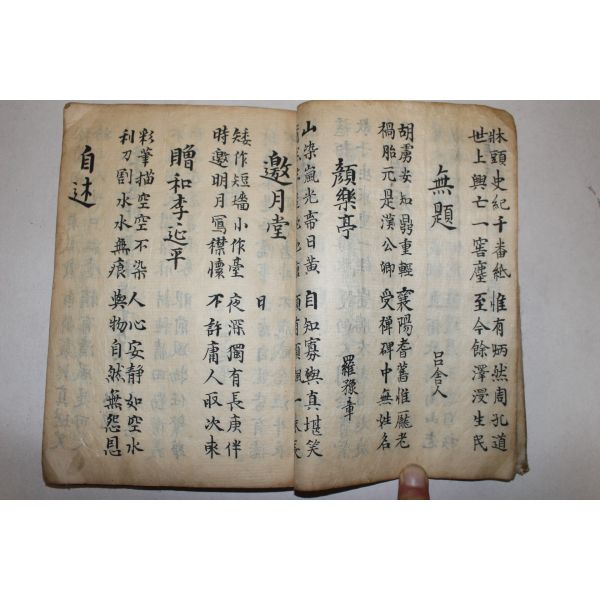 牀頭史紀千番紙 惟有炳然周孔道
世上興亡一窖塵 至今餘澤浸生民
無題 呂舍人
胡虜安知鼎重輕 襄陽耆舊惟龐老
禍胎元是漢公卿 受禪碑中無姓名
顏樂亭 羅豫章
山染嵐光帶日黃 自知寡與真堪笑
邀月堂
矮作短墻小作臺 夜深獨有長庚伴
時邀明月寫襟懷 不許庸人取次來
贈和李延平
彩筆描空空不染 人心安靜如空水
利刀割水水無痕 與物自然無怨恩
自述